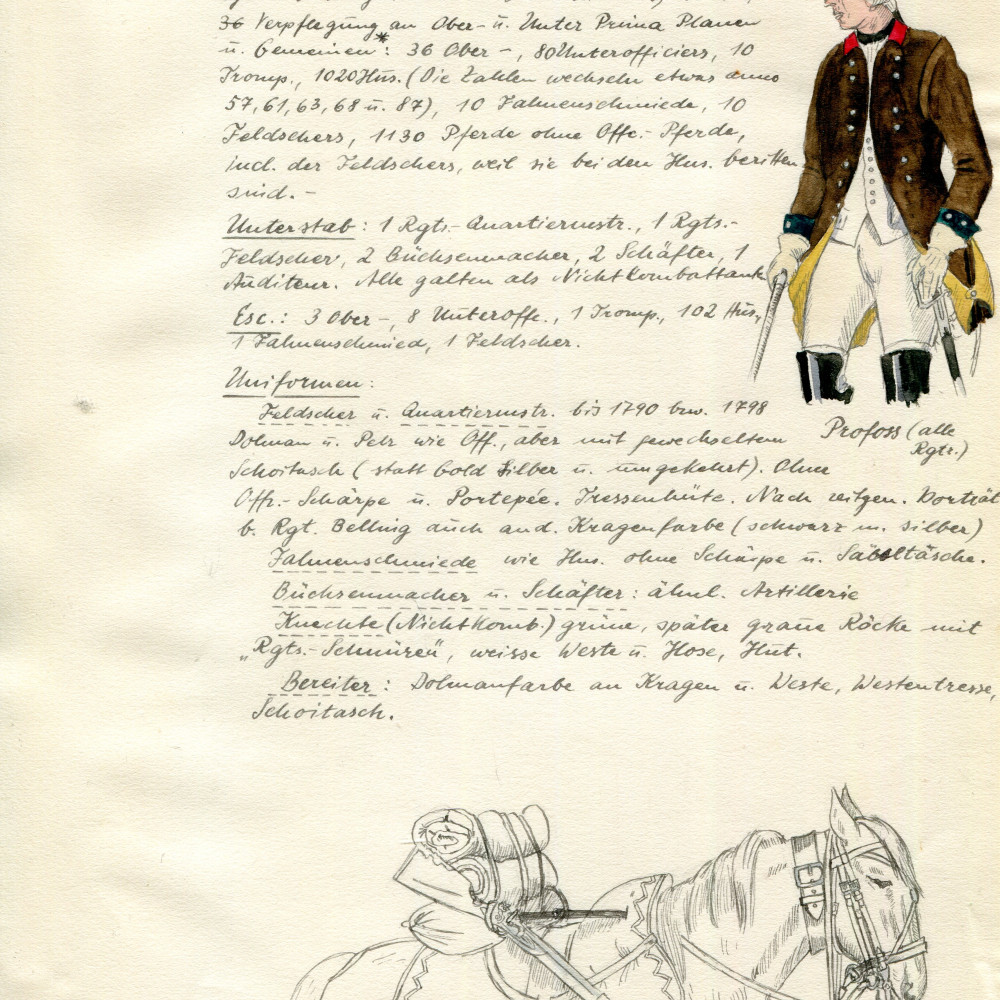 36 Verpflegung an Ober- u. Unter Prima Planen
u. Gemeinen*: 36 Ober-, 80 Unterofficiers, 10
Tromp., 1020 Hus. (Die Zahlen wechseln etwas anno
57, 61, 63, 68 u. 87), 10 Fahnenschmiede, 10
Feldschers, 1130 Pferde ohne Offc.-Pferde,
incl. der Feldschers, weil sie bei den Hus. beritten
sind. -
Unterstab: 1 Rgts.-Quartiermstr., 1 Rgts.-
Feldscher, 2 Büchsenmacher, 2 Schäfter, 1
Auditeur. Alle galten als Nichtkombattant
Esc.: 3 Ober-, 8 Unteroffc., 1 Tromp., 102 Hus.,
1 Fahnenschmied, 1 Feldscher.
Uniformen:
Feldscher u. Quartiermstr. bis 1790 bzw. 1798
Dolman u. Pelz wie Off., aber mit gewechseltem
Schoitasch (statt Gold Silber u. umgekehrt). Ohne
Offz.-Schärpe u. Portepée. Tressenhüte. Nach zeitgen. Porträt
b. Rgt. Belling auch and. Kragenfarbe (schwarz m. silber)
Fahnenschmiede wie Hus. ohne Schärpe u. Säbeltäsche.
Büchsenmacher u. Schäfter: ähnl. Artillerie
Knechte (Nichtkomb.) grüne, später graue Röcke mit
„Rgts.-Schnüren", weisse Weste u. Hose, Hut.
Bereiter: Dolmanfarbe an Kragen u. Weste, Westentresse,
Schoitasch.
Profoss (alle
Rgtr.)